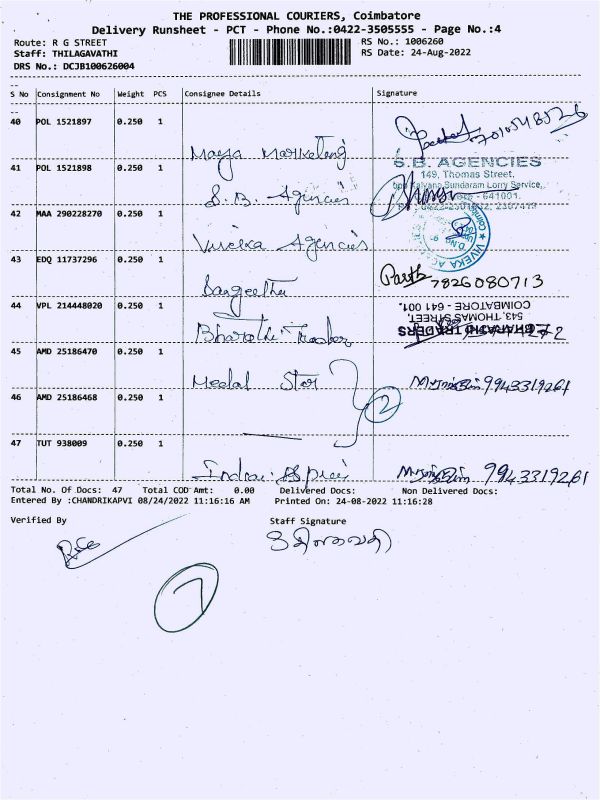 THE PROFESSIONAL COURIERS, Coimbatore
Delivery Runsheet - PCT - Phone No.:0422-3505555 - Page No.:4
Route: R G STREET
RS No.: 1006260
Staff: THILAGAVATHI
RS Date: 24-Aug-2022
DRS No.: DCJB100626004
S No Consignment No Weight PCS Consignee Details Signature
40 POL 1521897 0.250 1
Maya Marketing
41 POL 1521898 0.250 1
S.B. Agencies
S.B. AGENCIES
149, Thomas Street,
Kalyana Sundaram Lorry Service,
641001.
42 MAA 290228270 0.250 1
Viveka Agencies
VIVEKA
43 EDQ 11737296 0.250 1
Sangeetha
7826080713
44 VPL 214448020 0.250 1
Bharathi Traders
BHARATHI TRADERS
543, THOMAS STREET,
COIMBATORE - 641 001.
45 AMD 25186470 0.250 1
Medal Star
9943319261
2
46 AMD 25186468 0.250 1
47 TUT 938009 0.250 1
9943319261
Total No. Of Docs: 47 Total COD Amt: 0.00 Delivered Docs: Non Delivered Docs:
Entered By :CHANDRIKAPVI 08/24/2022 11:16:16 AM Printed On: 24-08-2022 11:16:28
Verified By
Staff Signature
7